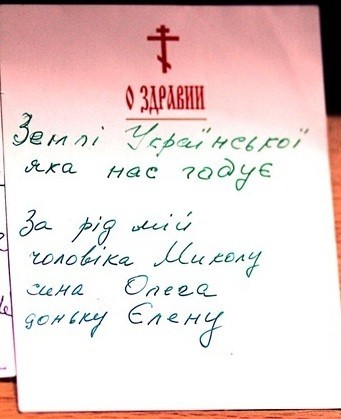 О ЗДРАВИИ
Землі Української
яка нас годує
За рід мій
чоловіка Миколу
сина Олега
доньку Єлену